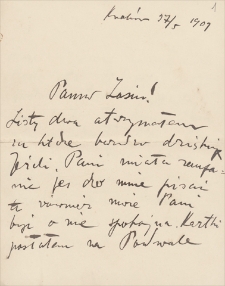 Kraków 27/5 1909
1
Panno Zosiu!
Listy dwa otrzymałam
za które bardzo dziękuję
Jeżeli Pani miała zaufa-
nie jes do mnie pisać
to może Pani
być o nie spokojna. Kartki
posłałam na Podwale